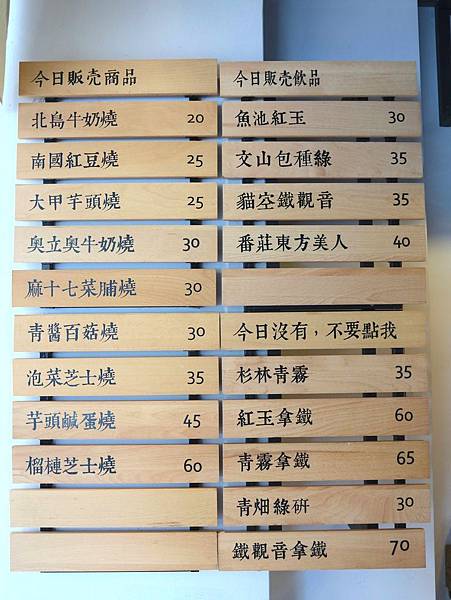 今日販売商品
北島牛奶燒 20
南國紅豆燒 25
大甲芋頭燒 25
奧立奧牛奶燒 30
麻十七菜脯燒 30
青醬百菇燒 30
泡菜芝士燒 35
芋頭鹹蛋燒 45
榴槤芝士燒 60
今日販売飲品
魚池紅玉 30
文山包種綠 35
貓空鐵觀音 35
番莊東方美人 40
今日沒有，不要點我
杉林青霧 35
紅玉拿鐵 60
青霧拿鐵 65
青畑綠研 30
鐵觀音拿鐵 70